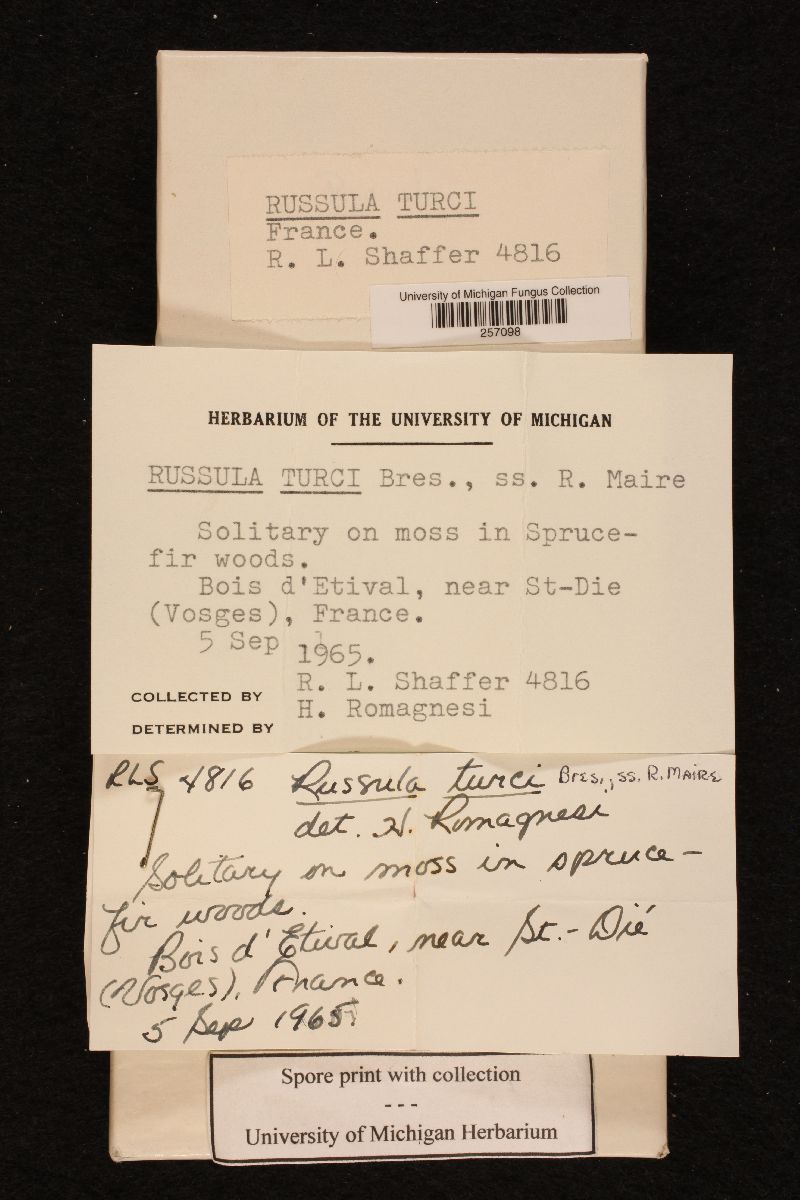 RUSSULA TURCI
France.
R. L. Shaffer 4816
University of Michigan Fungus Collection
257098
HERBARIUM OF THE UNIVERSITY OF MICHIGAN
RUSSULA TURCI Bres., ss. R. Maire
Solitary on moss in Spruce-
fir woods.
Bois d'Etival, near St-Die
(Vosges), France.
5 Sep 1965.
COLLECTED BY R. L. Shaffer 4816
DETERMINED BY H. Romagnesi
RLS 4816 Russula turci Bres., ss. R. Maire
det. H. Romagnesi
Solitary on moss in spruce-
fir woods.
Bois d'Etival, near St.-Dié
(Vosges), France.
5 Sep 1965
Spore print with collection
---
University of Michigan Herbarium